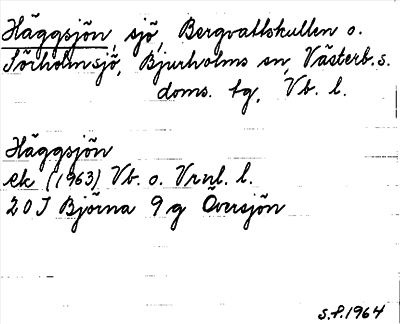 Häggsjön, sjö, Bergvattskullen o.
Törholmsjö, Bjurholms sn, Västerb.s.
doms. tg, Vb. l.
Häggsjön
ek (1963) Vb. o. Vrnl. l.
20 J Björna 9 g Översjön
S.F. 1964